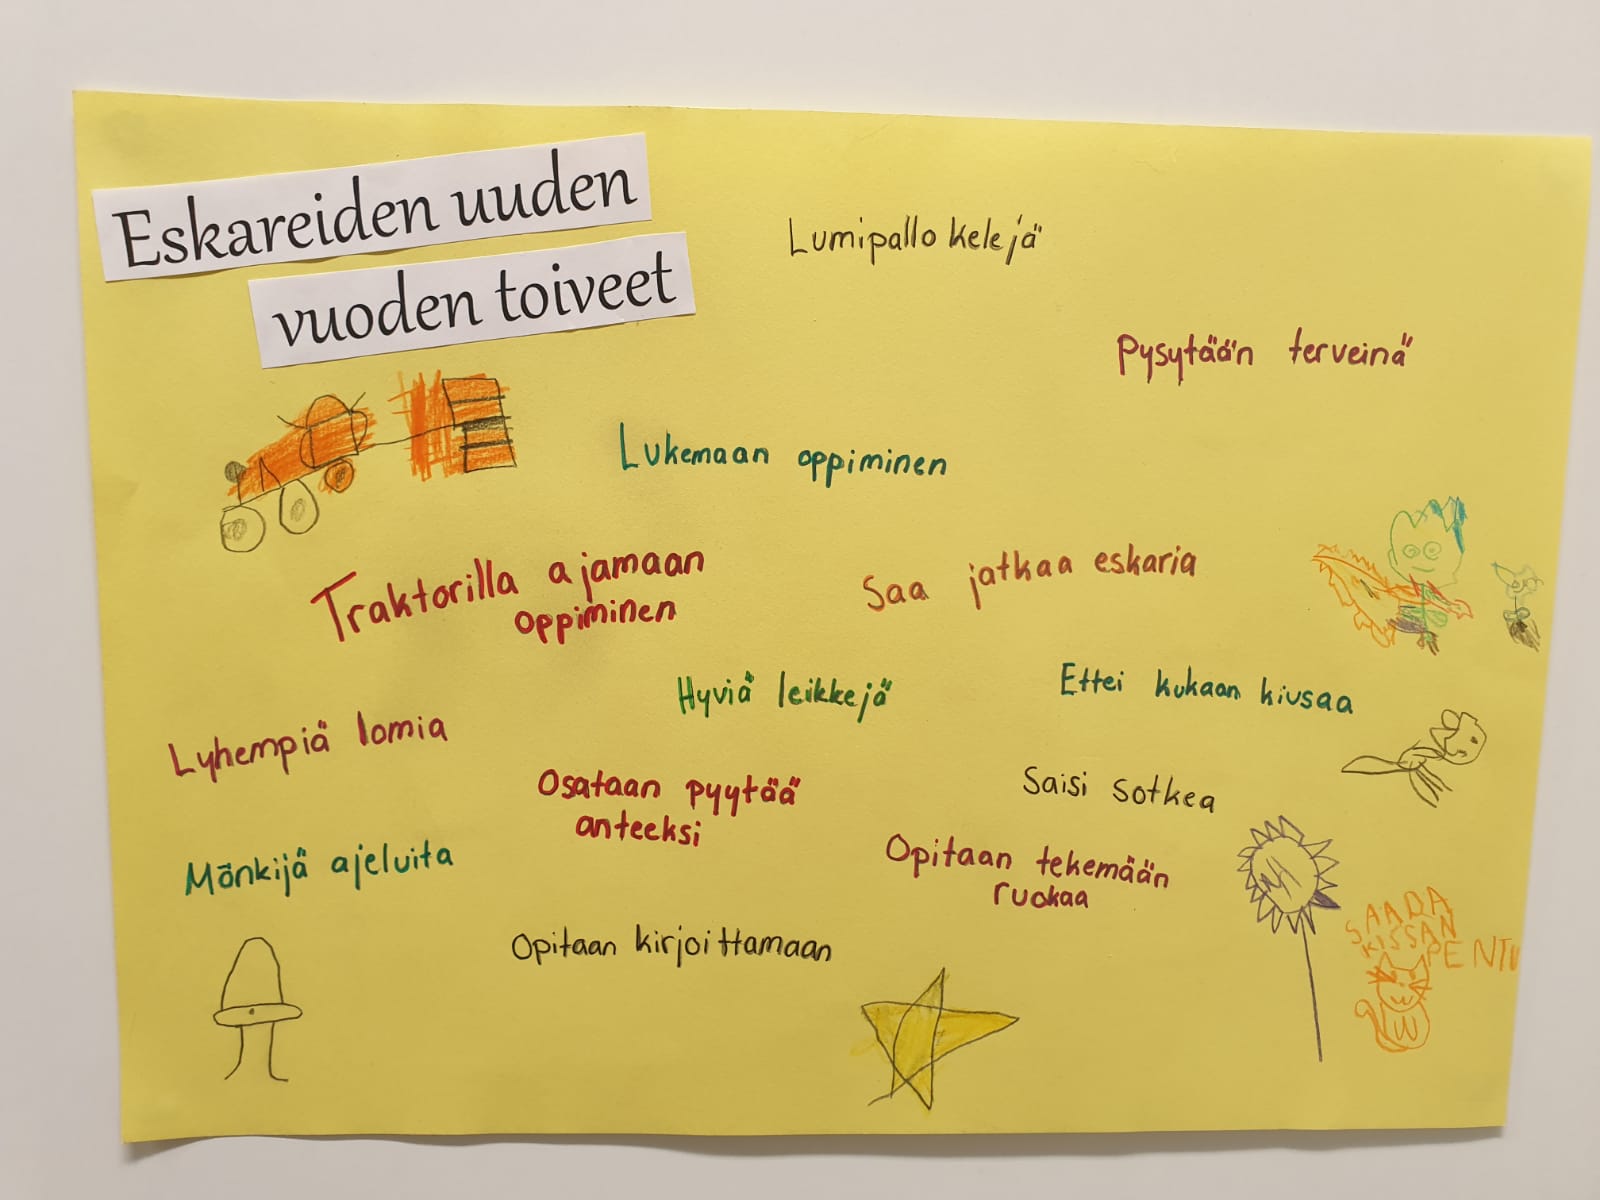 Eskareiden uuden
vuoden toiveet
Lumipallo kelejä
Pysytään terveinä
Lukemaan oppiminen
Traktorilla ajamaan
oppiminen
Saa jatkaa eskaria
Hyviä leikkejä
Ettei kukaan kiusaa
Lyhempiä lomia
Osataan pyytää
anteeksi
Saisi sotkea
Mönkijä ajeluita
Opitaan tekemään
ruokaa
Opitaan kirjoittamaan
SAADA
KISSAN
PENTU